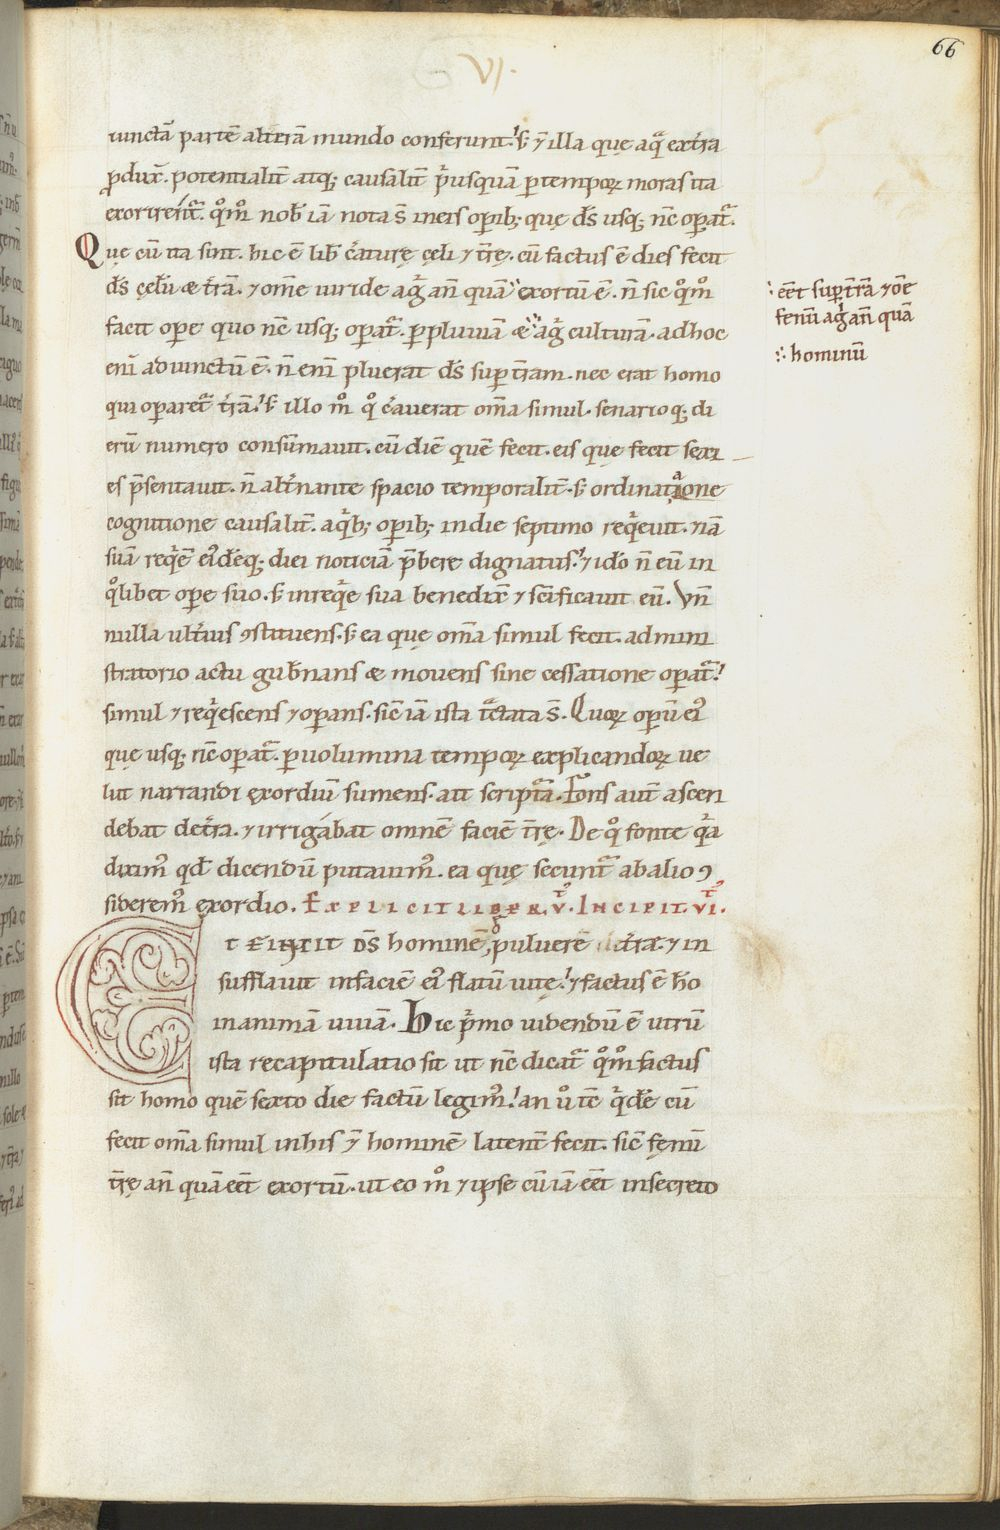 66
VI.
iunctā partē alterā mundo conferunt. s; ⁊ illa que aq̄ extra
ꝓdux̄. potentialit̄ atq; causalit̄ p̄usquā ꝑ tempoꝝ moras ita
exorirent᷑. qͦm nob̄ iā nota s̄ in eis oꝑib; quę d̄s usq; nc̄ oꝑat᷑.
Que cū ita sint. hic ē lib̄ c̄aturę cęli ⁊ t̄rę. cū factus ē dies fecit
d̄s cęlū & t̄rā. ⁊ om̄e uiride ag̃ an̄ quā exortū ē. n̄ sic qͦmͦ
facit oꝑe quo nc̄ usq; oꝑat᷑. ꝑ pluuiā & ag̃ culturā. ad hoc
eēt suꝑ t̄rā ⁊ oē
fenū ag̃ an̄ quā
hominū
eni adiunctū ē. n̄ eni pluerat d̄s suꝑ t̄ram. nec erat homo
qui oꝑaret᷑ t̄rā. s; illo mͦ qͦ c̄auerat om̄a simul. senarioq; di
erū numero consūmauit. cū diē quē fecit. eis que fecit sexi
es p̄sentauit. n̄ alt̄nante spacio temporalit̄. s; ordinata one
cognitione causalit̄. a qͥb; oꝑib; in die septimo reqͥeuit. nā
suā reqͥē eiꝰdēq; diei noticiā p̄bere dignatus. ⁊ idō n̄ eū in
qͦlibet oꝑe suo. s; in reqͥe sua benedix̄ ⁊ sc̄ificauit eū. Vn̄
nulla ult̄ius ꝯstituens. s; ea quę om̄a simul fecit. admini
stratorio actu gub̄nans & mouens sine cessatione oꝑat᷑.
simul ⁊ reqͥescens ⁊ oꝑans. sic̄ iā ista t̄ctata s̄. Quoꝝ oꝑū eiꝰ
quę usq; nc̄ oꝑat᷑. ꝑ uolumina tempoꝝ explicandoꝝ ue
lut narrandi exordiū sumens. ait script᷑a. Fons aut̄ ascen
debat de t̄ra. ⁊ irrigabat omnē faciē t̄rę. De qͦ fonte qͣ
diximꝰ qd̄ dicendū putauimꝰ. ea quę secunt᷑ ab alio ꝯ
sideremꝰ exordio. EXPLICIT LIBER. V. INCIPIT. VI.
ET FINXIT D̄S hominē puluerē de t̄ra. ⁊ in
sufflauit in faciē eiꝰ flatū uitę. ⁊ factus ē ho
in animā uiuā. Hic p̄mo uidendū ē utrū
ista recapitulatio sit ut nc̄ dicat᷑ qͦmͦ factus
sit homo quē sexto die factū legimꝰ. an uͦ tc̄ qͥdē cū
fecit om̄a simul in his ⁊ hominē latent̄ fecit. sic̄ fęnū
t̄rę an̄ quā eēt exortū. ut eo mͦ ⁊ ipse cū iā eēt in secreto